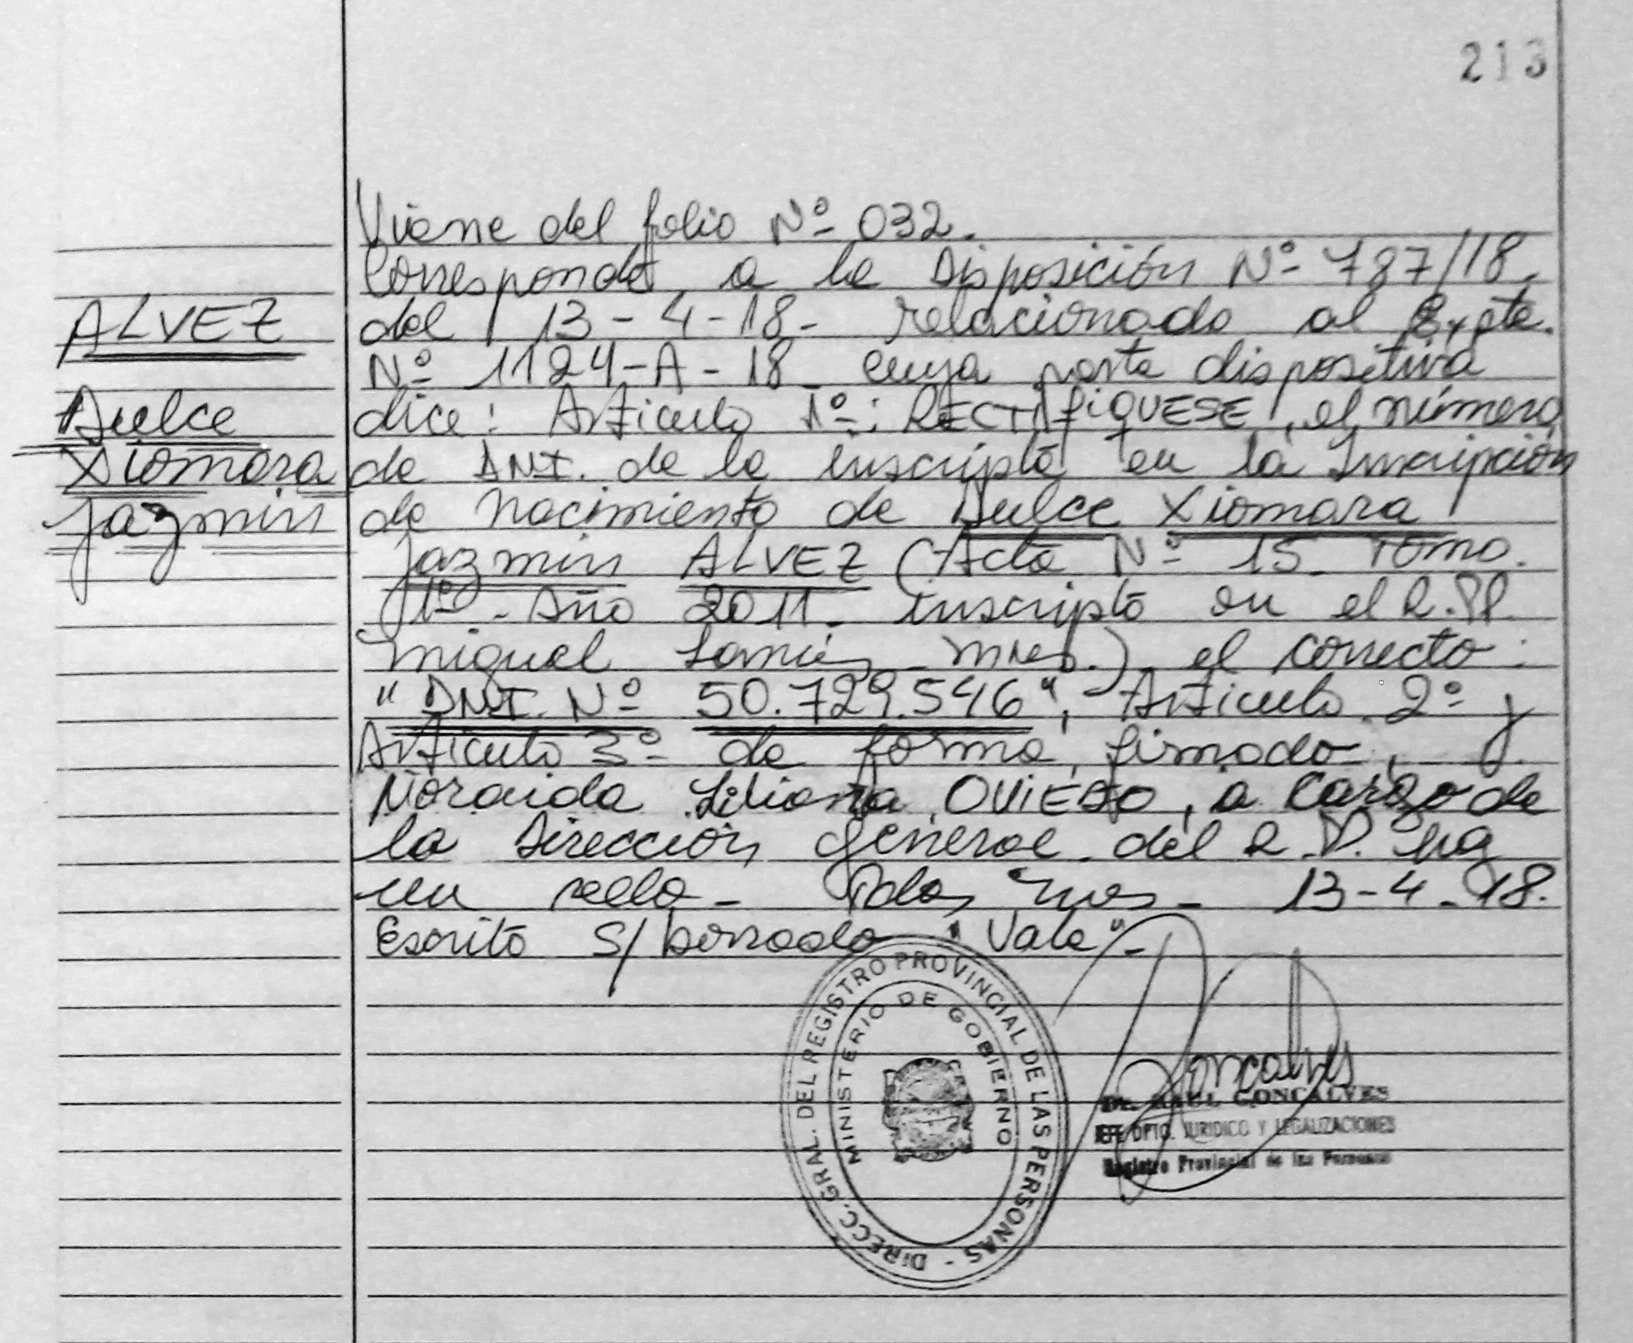 213
Viene del folio Nº 032.
Corresponde, a la Disposición Nº 787/18,
ALVEZ
del 13-4-18- relacionado al Expte.
Nº 1124-A-18- cuya parte dispositiva
Dulce
dice: Artículo 1º: RECTIFIQUESE, el número
Xiomara
de DNI. de la inscripta en la Inscripción
Jazmin
de nacimiento de Dulce Xiomara
Jazmin ALVEZ (Acta Nº 15- Tomo.
1º- Año 2011. inscripta en el R.PP.
Miguel Lanús - Mnes.) el correcto:
"DNI. Nº 50.729.546", Artículo 2º y
Artículo 3º de forma, firmado,
Noraida Liliana OVIEDO, a cargo de
la Dirección General del R.P. Hay
un sello- Pdas, Mnes- 13-4-18.
Escrito S/ borrado "Vale"-
DIRECC. GRAL. DEL REGISTRO PROVINCIAL DE LAS PERSONAS -
MINISTERIO DE GOBIERNO
Goncalves
Dr. RAUL GONCALVES
JEFE DPTO. JURIDICO Y LEGALIZACIONES
Registro Provincial de las Personas